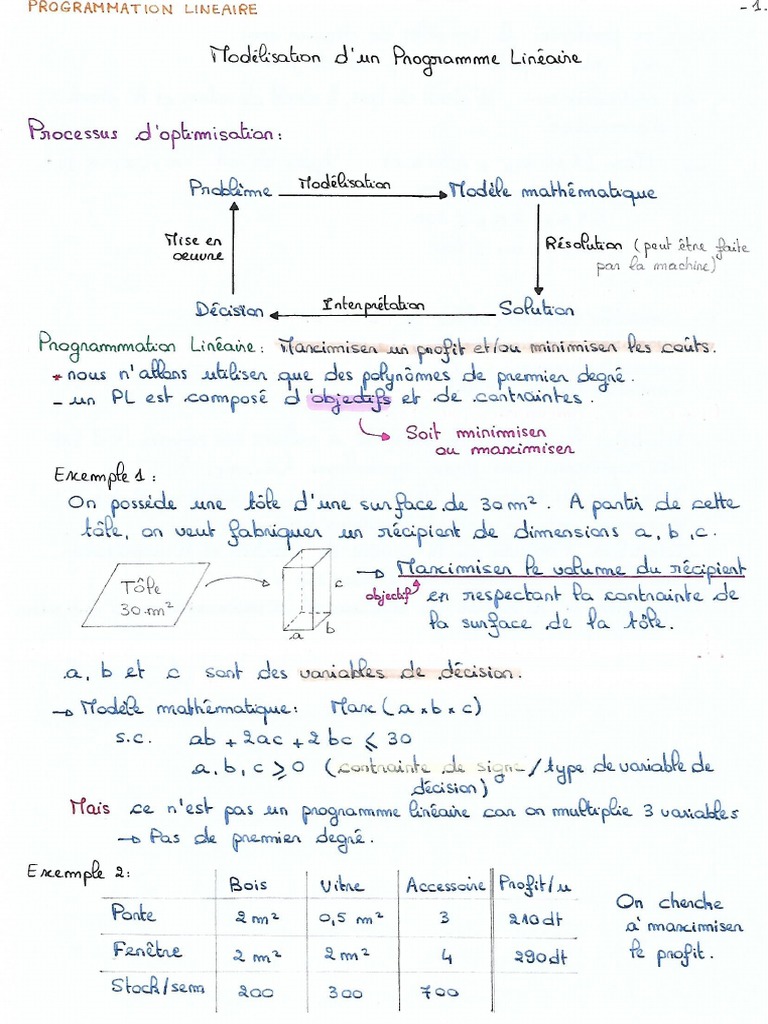 PROGRAMMATION LINEAIRE
- 1.
Modélisation d'un Programme Linéaire
Processus d'optimisation :
Problème Modélisation Modèle mathématique
Mise en oeuvre
Résolution (peut être faite
par la machine)
Décision Interprétation Solution
Programmation Linéaire : Maximiser un profit et/ou minimiser les coûts.
* nous n'allons utiliser que des polynômes de premier degré.
- un PL est composé d'objectifs et de contraintes.
Soit minimiser
ou maximiser
Exemple 1 :
On possède une tôle d'une surface de 30 m². A partir de cette
tôle, on veut fabriquer un récipient de dimensions a, b, c.
Tôle
30 m²
a
b
c
→ Maximiser le volume du récipient
objectif
en respectant la contrainte de
la surface de la tôle.
a, b et c sont des variables de décision.
→ Modèle mathématique : Max (a × b × c)
s.c. ab + 2ac + 2bc ⩽ 30
a, b, c ⩾ 0 (contrainte de signe / type de variable de
décision)
Mais ce n'est pas un programme linéaire car on multiplie 3 variables
→ Pas de premier degré.
Exemple 2 :
Bois Vitre Accessoire Profit/u
Porte 2 m² 0,5 m² 3 210 dt
Fenêtre 2 m² 2 m² 4 290 dt
Stock/sem 200 300 700
On cherche
à maximiser
le profit.